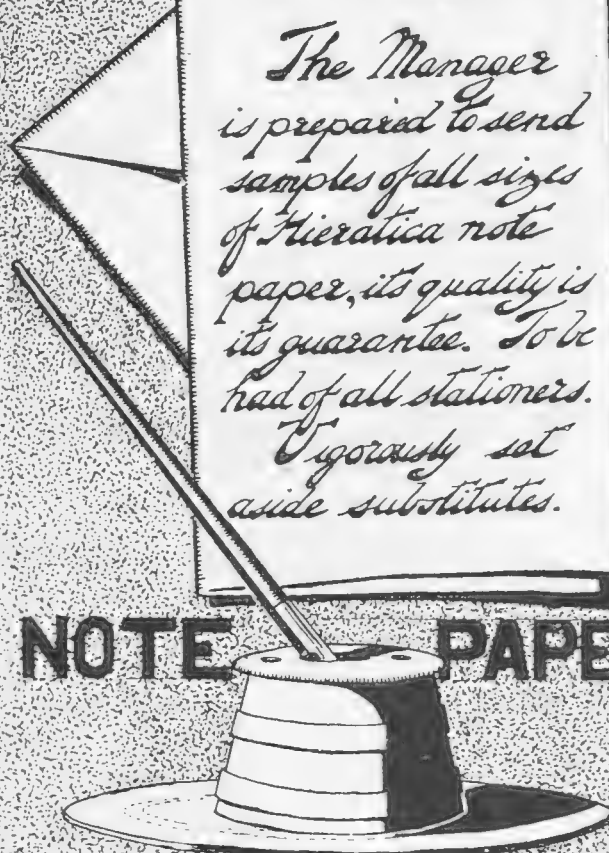 The Manager
is prepared to send
samples of all sizes
of Hieratica note
paper, its quality is
its guarantee. To be
had of all stationers.
Vigorously set
aside substitutes.
NOTE PAPE